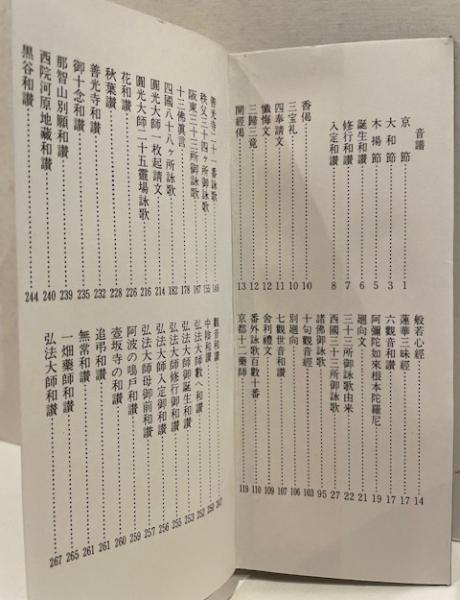 音譜
京節……1
大和節……3
木揚節……5
誕生和讃……6
修行和讃……7
入定和讃……8
香偈……10
三宝礼……10
四奉請文……11
懺悔文……12
三歸三竟……12
開經偈……13
般若心經……14
蓮華三昧經……17
六觀音和讃……17
阿彌陀如來根本陀羅尼……19
廻向文……21
三十三所御詠歌由来……22
西國三十三所御詠歌……27
諸佛御詠歌……95
十句觀音經……103
別廻向……106
七觀世音和讃……107
舍利禮文……109
番外詠歌百數十番……110
京都十二藥師……119
善光寺二十一番詠歌……148
秩父三十四ヶ所御詠歌……155
阪東三十三所御詠歌……167
十三佛眞言……178
四國八十八ヶ所詠歌……182
圓光大師一枚起請文……214
圓光大師二十五靈場詠歌……216
花和讃……226
秋葉讃……228
善光寺和讃……232
御十念和讃……235
那智山別願和讃……239
西院河原地藏和讃……240
黒谷和讃……244
觀音和讃……247
中陰和讃……250
弘法大師數へ和讃……252
弘法大師御誕生和讃……253
弘法大師修行御和讃……255
弘法大師入定御和讃……256
弘法大師母御前和讃……257
阿波の鳴戸和讃……259
壺坂寺の和讃……260
追弔和讃……261
無常和讃……261
一畑藥師和讃……265
弘法大師和讃……267